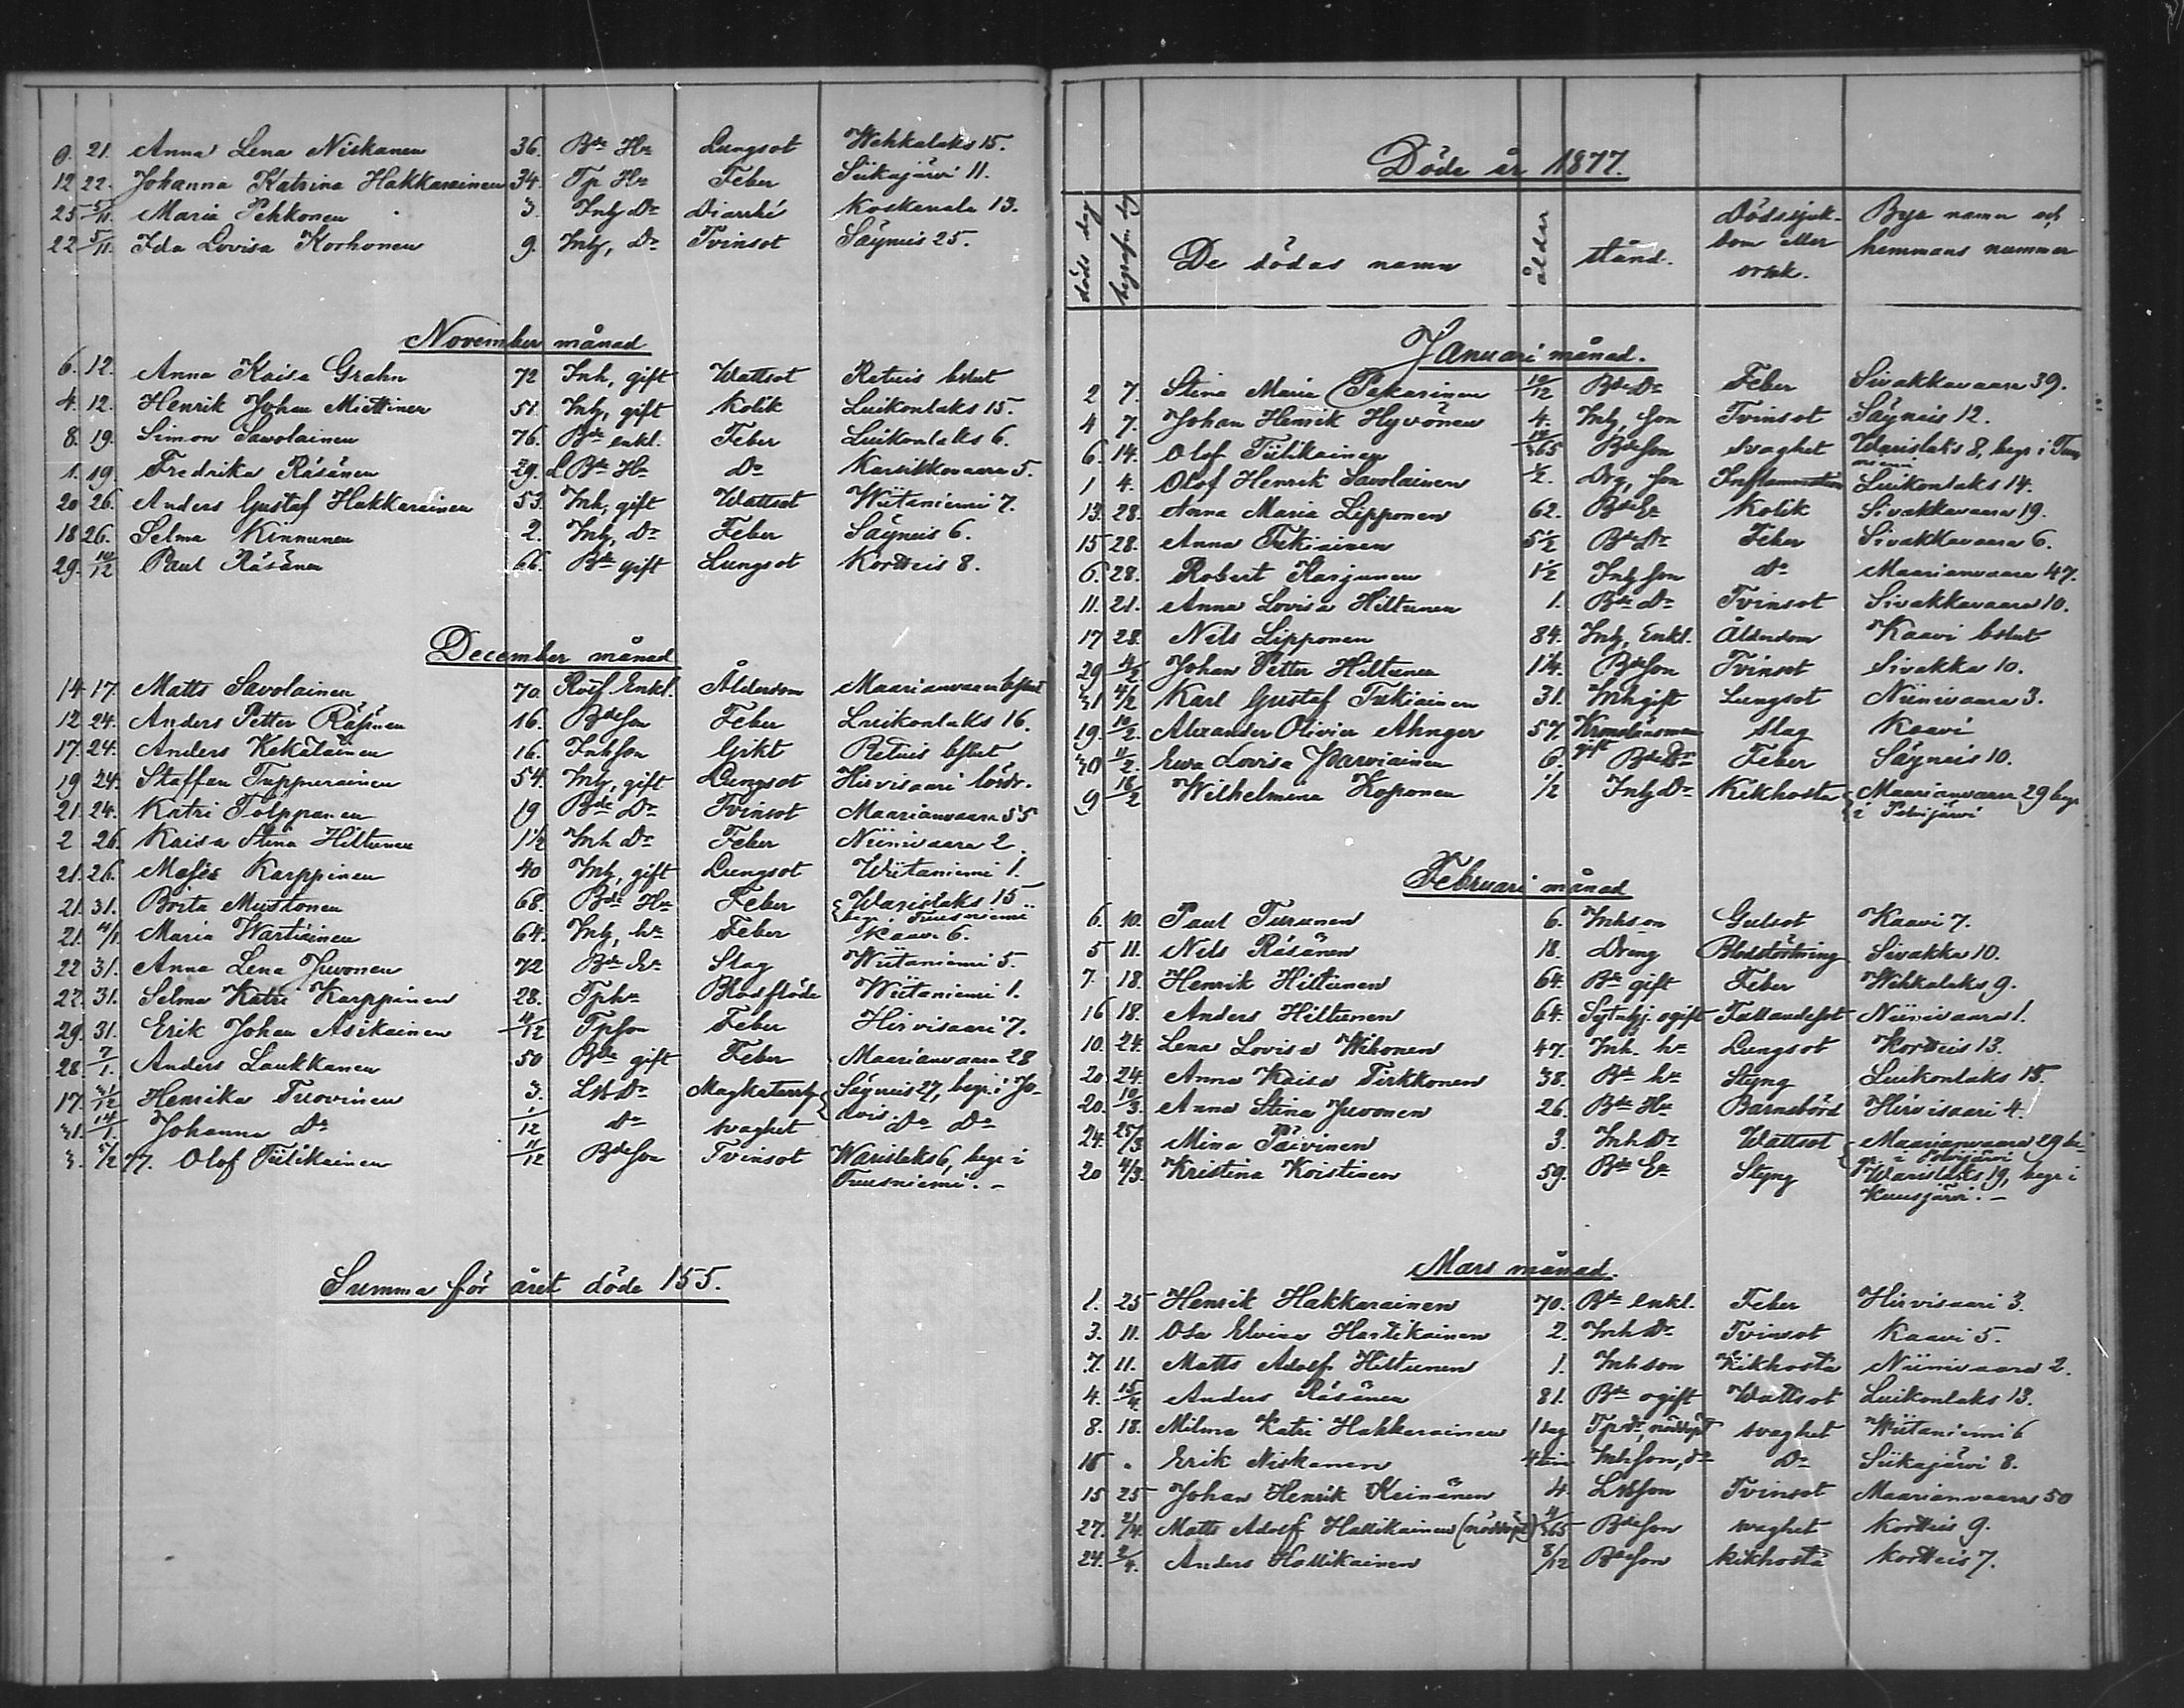 9. 21. Anna Lena Niskanen 36. Bde Hu Lungsot Wehkalaks 15.
12 22. Johanna Katrina Hakkarainen 34. Tp Hu Feber Siikajärvi 11.
25 5/11. Maria Pehkonen 3. Inh Dr Diarrhé Koskenala 13.
22 5/11. Ida Lovisa Korhonen 9. Inh, Dr Tvinsot Säyneis 25.
November månad
6. 12. Anna Kaisa Grahn 72 Inh, gift Wattsot Retuis bslut
4. 12. Henrik Johan Miettinen 51. Inh, gift Kolik Luikonlaks 15.
8. 19. Simon Savolainen 76. Bde enkl. Feber Luikonlaks 6.
1. 19. Fredrika Räsänen 29. L Bde Hu Do Karsikkovaara 5.
20 26. Anders Gustaf Hakkarainen 53. Inh, gift Wattsot Wiitaniemi 7.
18 26. Selma Kinnunen 2. Inh, Dr Feber Säyneis 6.
29. 10/12 Paul Räsänen 66. Bde gift Lungsot Kortteis 8.
December månad
14. 17. Matts Savolainen 70. Enkl. Ålderdom Maarianvaara
12 24. Anders Petter Räsänen 16. Bdeson Feber Luikonlaks 16.
17. 24. Anders Kekäläinen 16. Inhson Gikt Retuis
19 24. Staffan Tuppurainen 54. Inh, gift Lungsot Hirvisaari
21. 24. Katri Tolppanen 19 Bde Dr Tvinsot Maarianvaara 55
2 26. Kaisa Stina Hiltunen 1 1/2 Inh Dr Feber Niinivaara 2.
21. 26. Moses Karppinen 40 Inh, gift Lungsot Wiitaniemi 1.
21. 31. Brita Mustonen 68. Bde Hu Feber Waristaks 15.
begr. i Tuusniemi
21. 4/1. Maria Wartiainen 64. Inh, hu Feber Kaavi 6.
22 31. Anna Lena Juvonen 72 Bde Slag Wiitaniemi 5.
22. 31. Selma Katri Karppinen 28. Tphu Blodflöde Wiitaniemi 1.
29. 31. Erik Johan Asikainen 4/12 Tpson Feber Hirvisaari 7.
28 7/1. Anders Laukkanen 50 Bde gift Feber Maarianvaara 28
17. 31/12 Henrika Tuovinen 3. Lbdr Magkatarrh Säyneis 27, begr. i Jo-
31. 14/1. Johanna Do 1/12 Do svaghet do Do
3. 5/2 77. Olof Tiilikainen 11/12 Bdeson Tvinsot Waristaks 6, begr i
Tuusniemi. -
Summa för året döde 155.
Döde år 1877.
döds dag begrafn. dag De dödas namn ålder stånd. Dödssjuk- Bys namn och
dom eller hemmans nummer
orsak.
Januari månad.
2 7. Stina Maria Pekarinen 10/12 Bde Dr Feber Sivakkavaara 39.
4 7. Johan Henrik Hyvönen 4. Inh, son Tvinsot Säyneis 12.
6. 14. Olof Tiilikainen 14/365 Bdeson svaghet Waristaks 8, begr. i Tuus
niemi
1 4. Olof Henrik Savolainen 1/2. Drg, son Inflammation Luikonlaks 14.
13. 28. Anna Maria Lipponen 62. Bde Kolik Sivakkavaara 19.
15 28. Anna Tukiainen 5 1/2 Bde Dr Feber Sivakkavaara 6.
6. 28. Robert Karjunen 1 1/2 Inhson do Maarianvaara 47.
11. 21. Anna Lovisa Hiltunen 1. Bde Dr Tvinsot Sivakkavaara 10.
17 28. Nils Lipponen 84. Inh, Enkl. Ålderdom Kaavi bslut
29 4/2 Johan Petter Hiltunen 1 1/4. Bdeson Tvinsot Sivakka 10.
31 4/2 Karl Gustaf Tukiainen 31. Inhgift Lungsot Niinivaara 3.
19. 10/2. Alexander Olivier Ahnger 57. Kronolänsman Slag Kaavi
gift
30 11/2. Ewa Lovisa Parviainen 6. Bde Dr Feber Säyneis 10.
9 16/2 Wilhelmina Koponen 1/2 Inh Dr Kikhosta Maarianvaara 29 begr
i Polvijärvi
Februari månad
6. 10. Paul Turunen 6. Inhson Gulsot Kaavi 7.
5 11. Nils Räsänen 18. Dreng Blodstörtning Sivakka 10.
7. 18. Henrik Hiltunen 64. Bde gift Feber Wehkalaks 9.
16 18. Anders Hiltunen 64. Sytnhj. ogift Fallandesot Niinivaara 1.
10. 24. Lena Lovisa Wihonen 47. Inh. hu Lungsot Kortteis 13.
20. 24. Anna Kaisa Tirkkonen 38. Bde hu Styng Luikonlaks 15.
20. 10/3. Anna Stina Juvonen 26. Bde Hu Barnsbörd Hirvisaari 4.
24. 25/3 Mina Päivinen 3. Inh Dr Wattsot Maarianvaara 29 be-
gr. i Polvijärvi
20 4/3. Kristina Koistinen 59. Bde Styng Waristaks 19, begr i
Kuusjärvi. -
Mars månad.
1. 25 Henrik Hakkarainen 70. Bde enkl. Feber Hirvisaari 3.
3. 11. Ota Elvira Hartikainen 2. Inh Dr Tvinsot Kaavi 5.
7. 11. Matts Adolf Hiltunen 1. Inhson Kikhosta Niinivaara 2.
4. 15/4. Anders Räsänen 81. Bde ogift Wattsot Luikonlaks 13.
8. 18. Milma Katri Hakkarainen 1 dag Tp dr, nöddöpt svaghet Wiitaniemi 6
16 " Erik Niskanen 4 tim Inhson, do Do Siikajärvi 8.
15 25 Johan Henrik Keinänen 4. Lbson Tvinsot Maarianvaara 50
27. 2/4. Matts Adolf Hallikainen (nöddöpt) 4/365 Bdeson svaghet Kortteis 9.
24. 2/4. Anders Hallikainen 8/12 Bdeson kikhosta Kortteis 7.